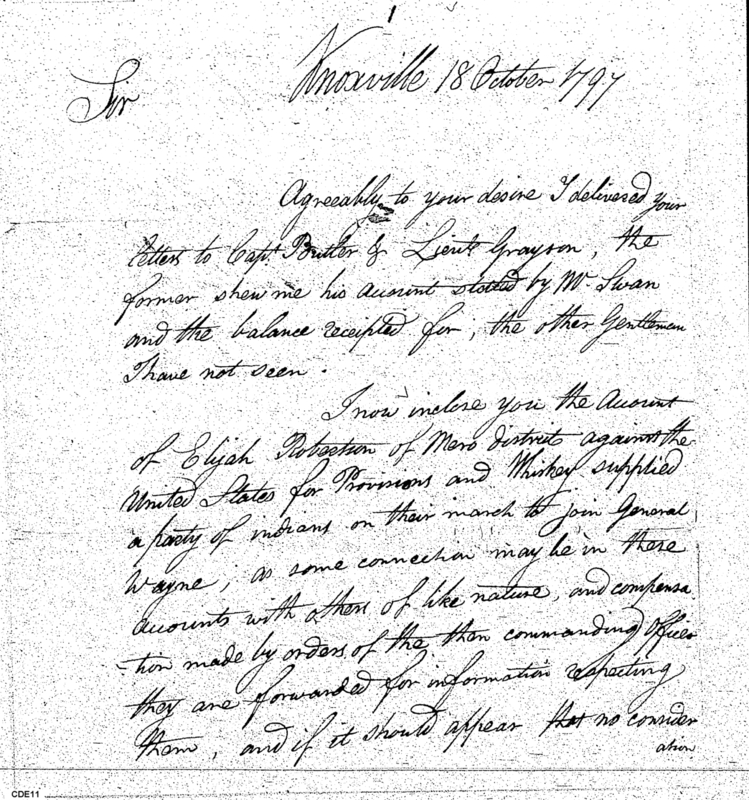 1
Knoxville 18 October 1797
Sir
Agreeably to your desire I delivered your
letters to Capt. Butler & Lieut. Grayson, the
former shew me his Account stated by Mr Swan
and the balance receipted for, the other Gentleman
I have not seen.
I now inclose you the Account
of Elijah Robertson of Mero district against the
United States for Provisions and Whiskey supplied
a party of indians on their march to join General
Wayne; as some connection may be in these
Accounts with others of like nature, and compensa
-tion made by orders of the then commanding Officer
they are forwarded for information respecting
them, and if it should appear that no consider
ation
CDE11